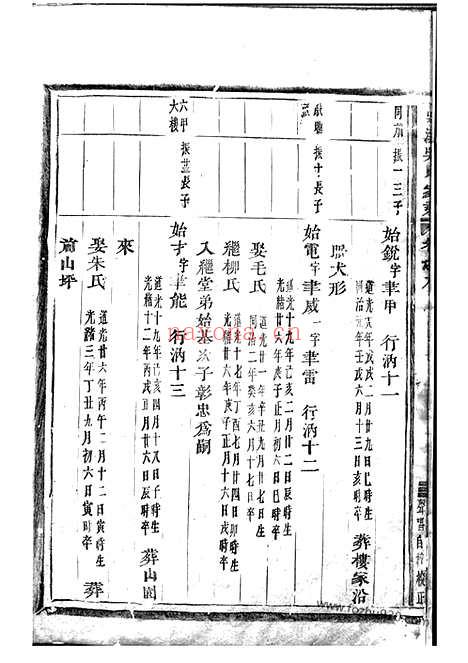 振一三子
始銳字聿甲 行汭十一
道光戊戌二月廿九日巳時生
同治元年壬戌六月十三日亥時卒
葬樓家沿
犬形
振十長子
始電字聿威一字聿雷 行汭十二
道光十九年己亥二月廿二日辰時生
光緒廿六年庚子正月初六日巳時卒
娶毛氏
道光廿一年辛丑九月廿七日辰時生
同治二年癸亥六月十七日辰時卒
繼柳氏
道光十七年丁酉七月廿四日卯時生
光緒廿六年庚子正月十六日戌時卒
入繼堂弟始基次子彰忠為嗣
六甲 振 長子
大樓
始才字聿能 行汭十三
道光十九年己亥四月十八日子時生
光緒十二年丙戌正月廿六日辰時卒
葬山園
來
娶朱氏
道光廿六年丙午二月十二日寅時生
光緒三年丁丑九月初六日寅時卒
葬
前山坪
nayona.cn
www.fozhu920